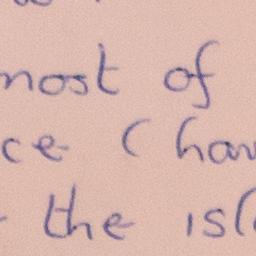 most of
ce (hav
the isl